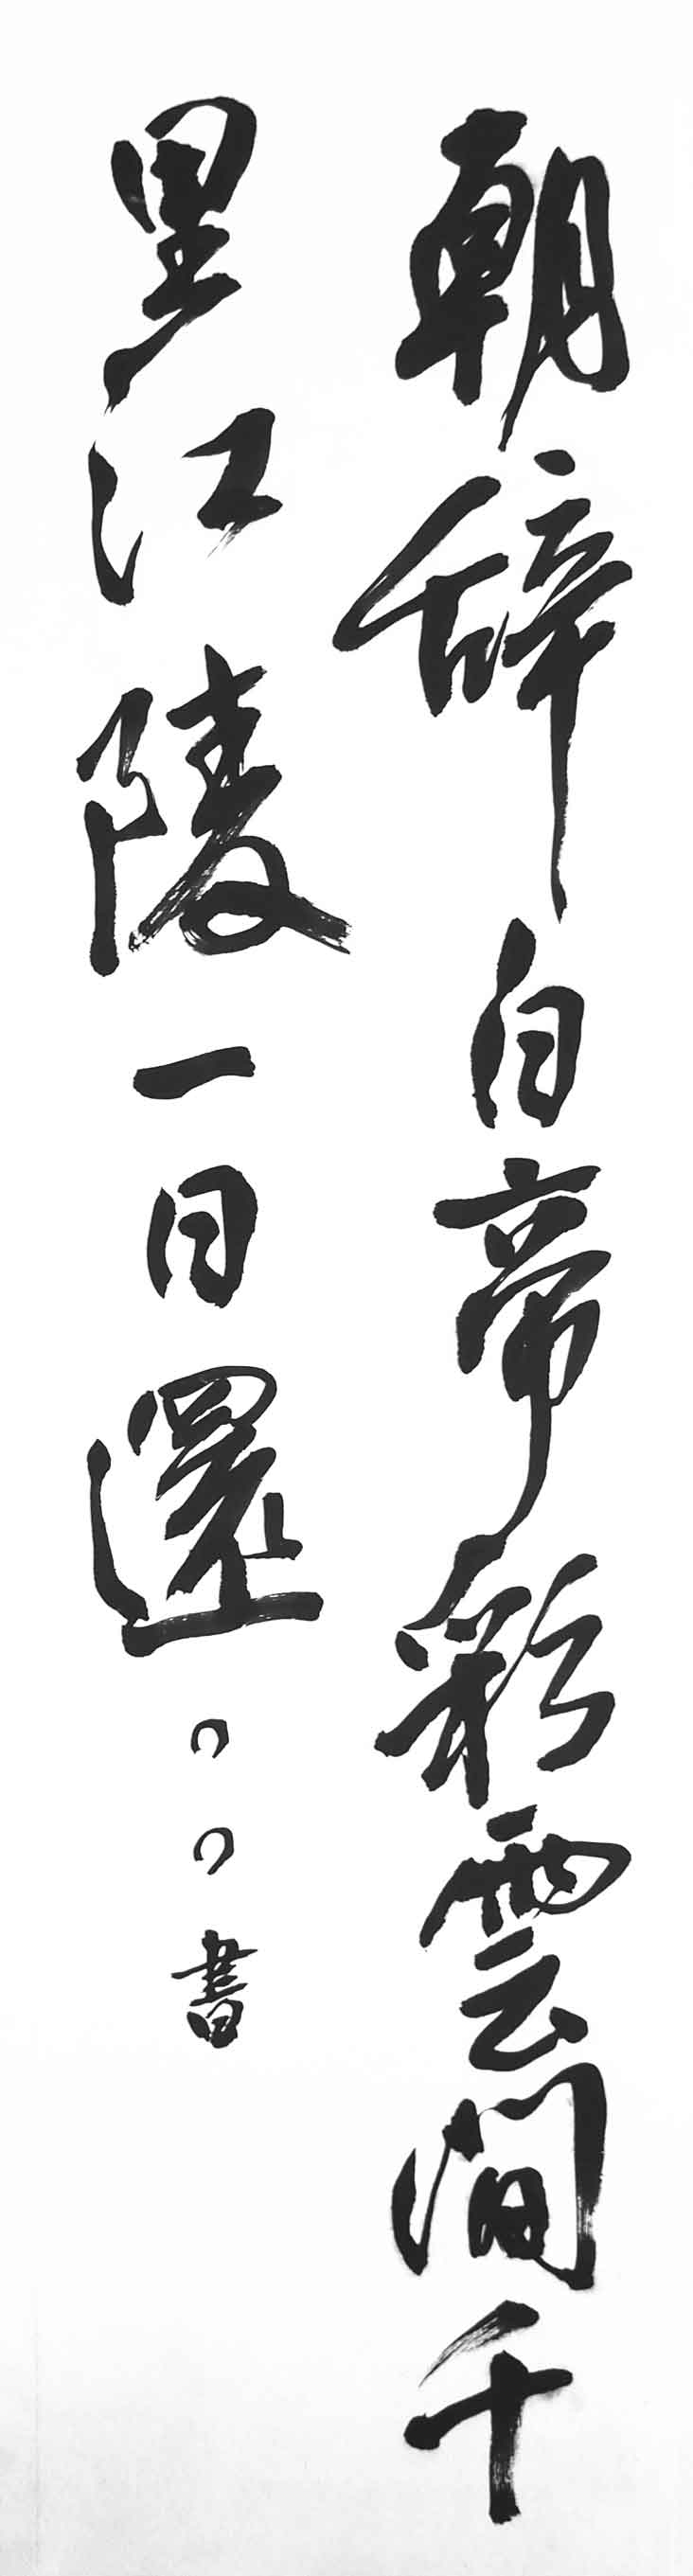 朝辞白帝彩雲間千
里江陵一日還○○書